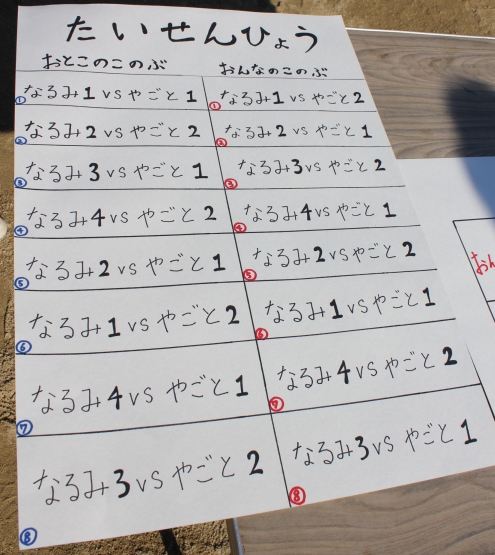 たいせんひょう
おとこのこのぶ
おんなのこのぶ
① なるみ1 vs やごと1
① なるみ1 vs やごと2
② なるみ2 vs やごと2
② なるみ2 vs やごと1
③ なるみ3 vs やごと1
③ なるみ3 vs やごと2
④ なるみ4 vs やごと2
④ なるみ4 vs やごと1
⑤ なるみ2 vs やごと1
⑤ なるみ2 vs やごと2
⑥ なるみ1 vs やごと2
⑥ なるみ1 vs やごと1
⑦ なるみ4 vs やごと1
⑦ なるみ4 vs やごと2
⑧ なるみ3 vs やごと2
⑧ なるみ3 vs やごと1
おん